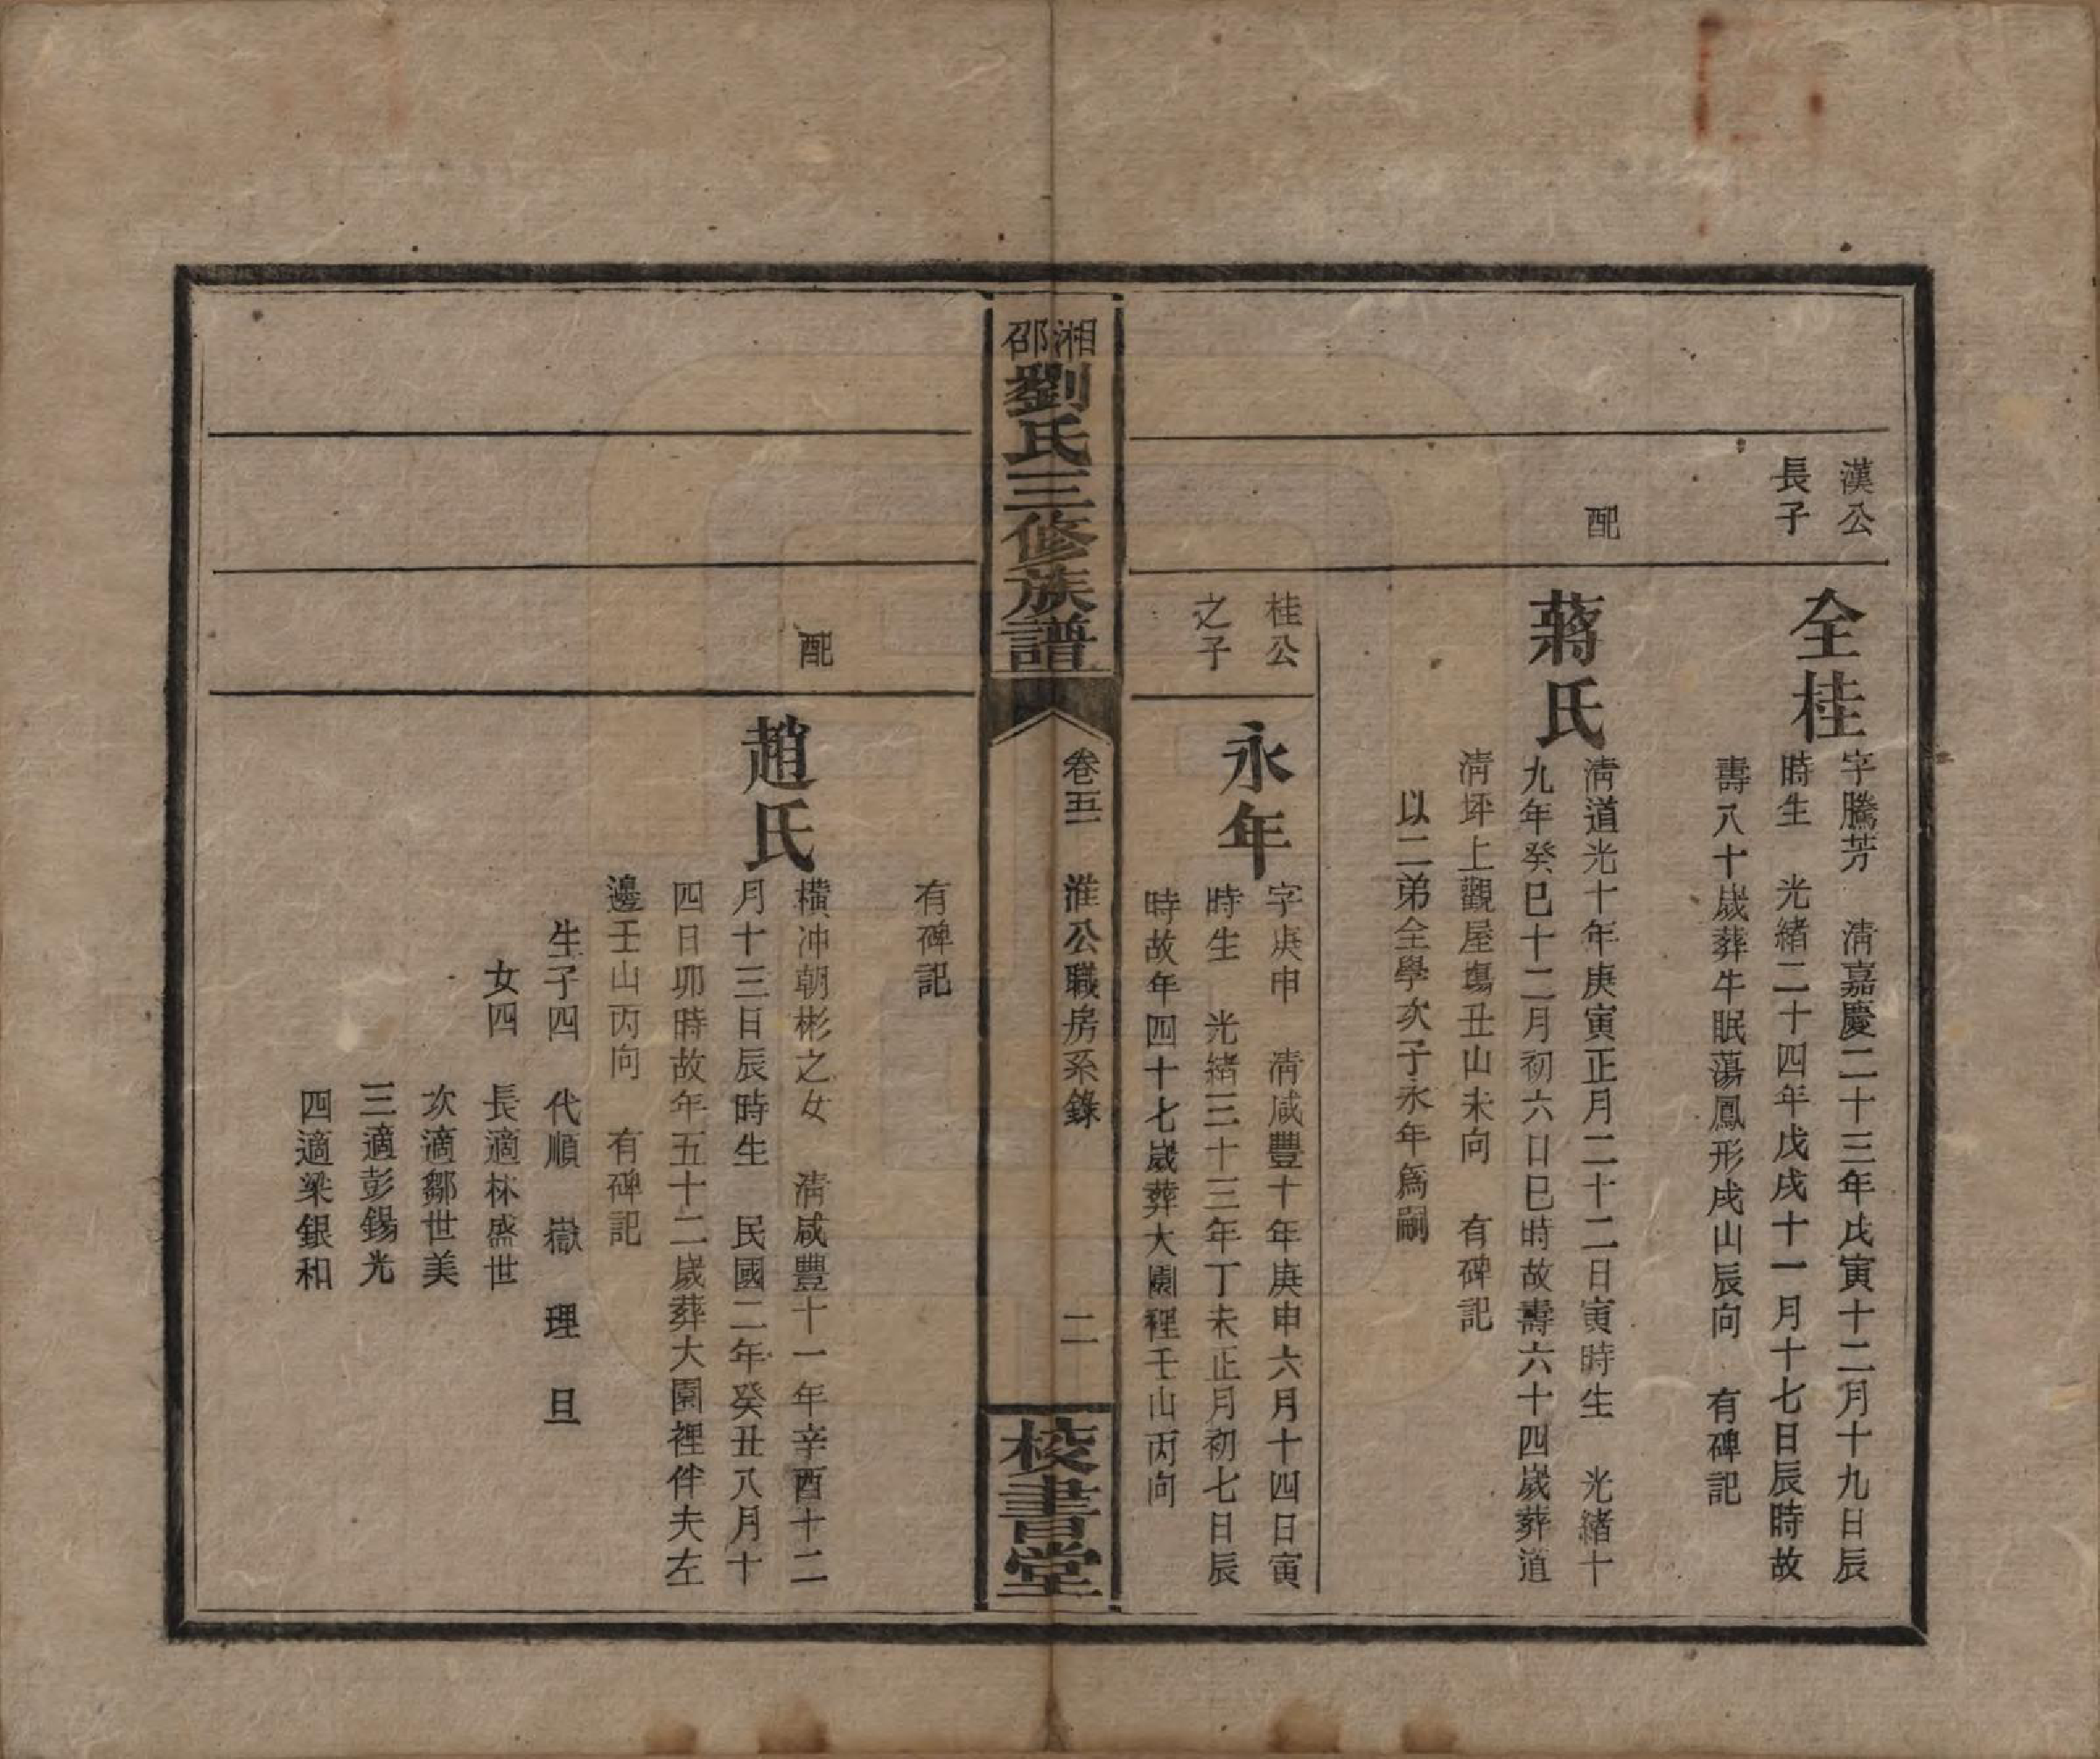 漢公
長子
全桂
字騰芳　清嘉慶二十三年戊寅十二月十九日辰
時生　光緒二十四年戊戌十一月十七日辰時故
壽八十歲葬牛眠蕩鳳形戌山辰向　有碑記
配
蔣氏
淸道光十年庚寅正月二十二日寅時生　光緒十
九年癸巳十二月初六日巳時故壽六十四歲葬道
淸坪上觀屋塲丑山未向　有碑記
以二弟全學次子永年爲嗣
桂公
之子
永年
字庚申　淸咸豐十年庚申六月十四日寅
時生　光緒三十三年丁未正月初七日辰
時故年四十七歲葬大園裡壬山丙向
湘邵
劉氏三修族譜
卷五一　淮公職房系錄　二
校書堂
有碑記
配
趙氏
橫冲朝彬之女　淸咸豐十一年辛酉十二
月十三日辰時生　民國二年癸丑八月十
四日卯時故年五十二歲葬大園裡伴夫左
邊壬山丙向　有碑記
生子四　代順　嶽　理　旦
女四　長適林盛世
次適鄒世美
三適彭錫光
四適梁銀和